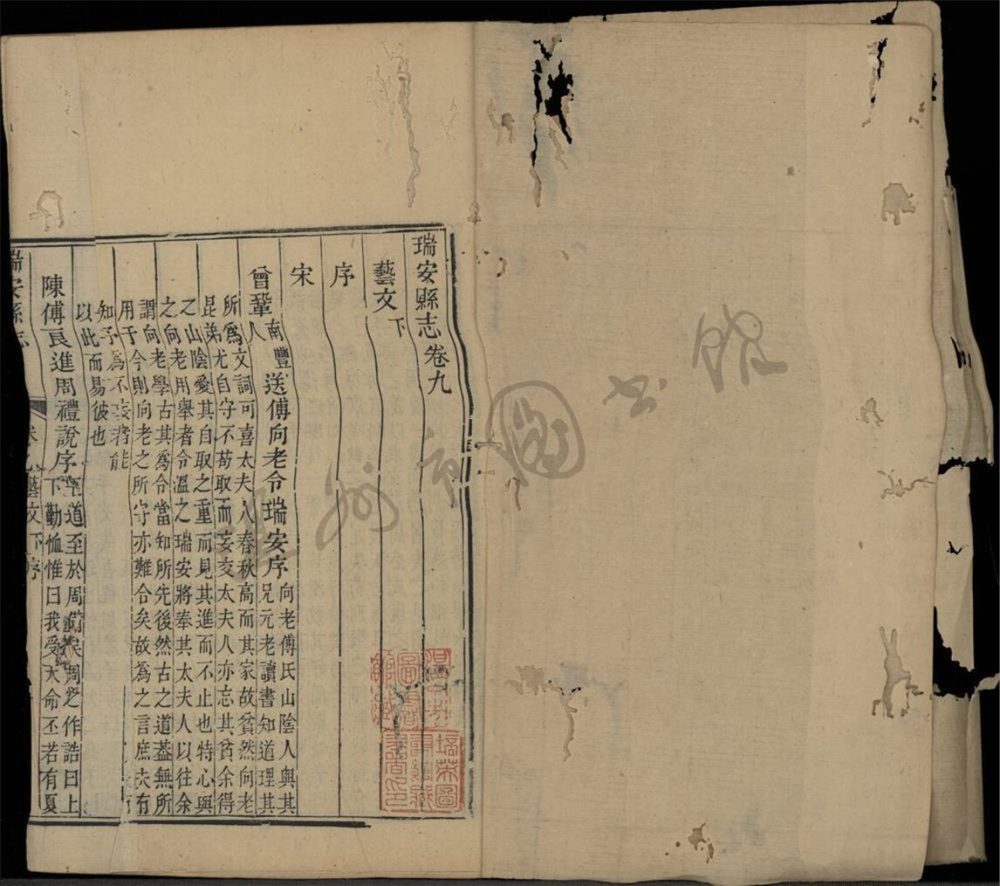 瑞安縣志卷九
藝文下
序
宋
曾鞏南豐人送傅向老令瑞安序向老傅氏山陰人與其兄元老讀書知道理其
所為文詞可喜太夫人春秋高而其家故貧然向老
昆弟尤自守不苟取而妄交太夫人亦忘其貧余得
之山陰愛其自取之重而見其進而不止也特心與
之向老用舉者令溫之瑞安將奉其太夫人以往余
謂向老學古其為令當知所先後然古之道葢無所
用于今則向老之所守亦難合矣故為之言庶夫有
知予為不妄者能
以此而易彼也
陳傅良進周禮說序王道至於周備矣周之作誥曰上下勤恤惟曰我受天命丕若有夏
瑞安縣志
卷九藝文下序